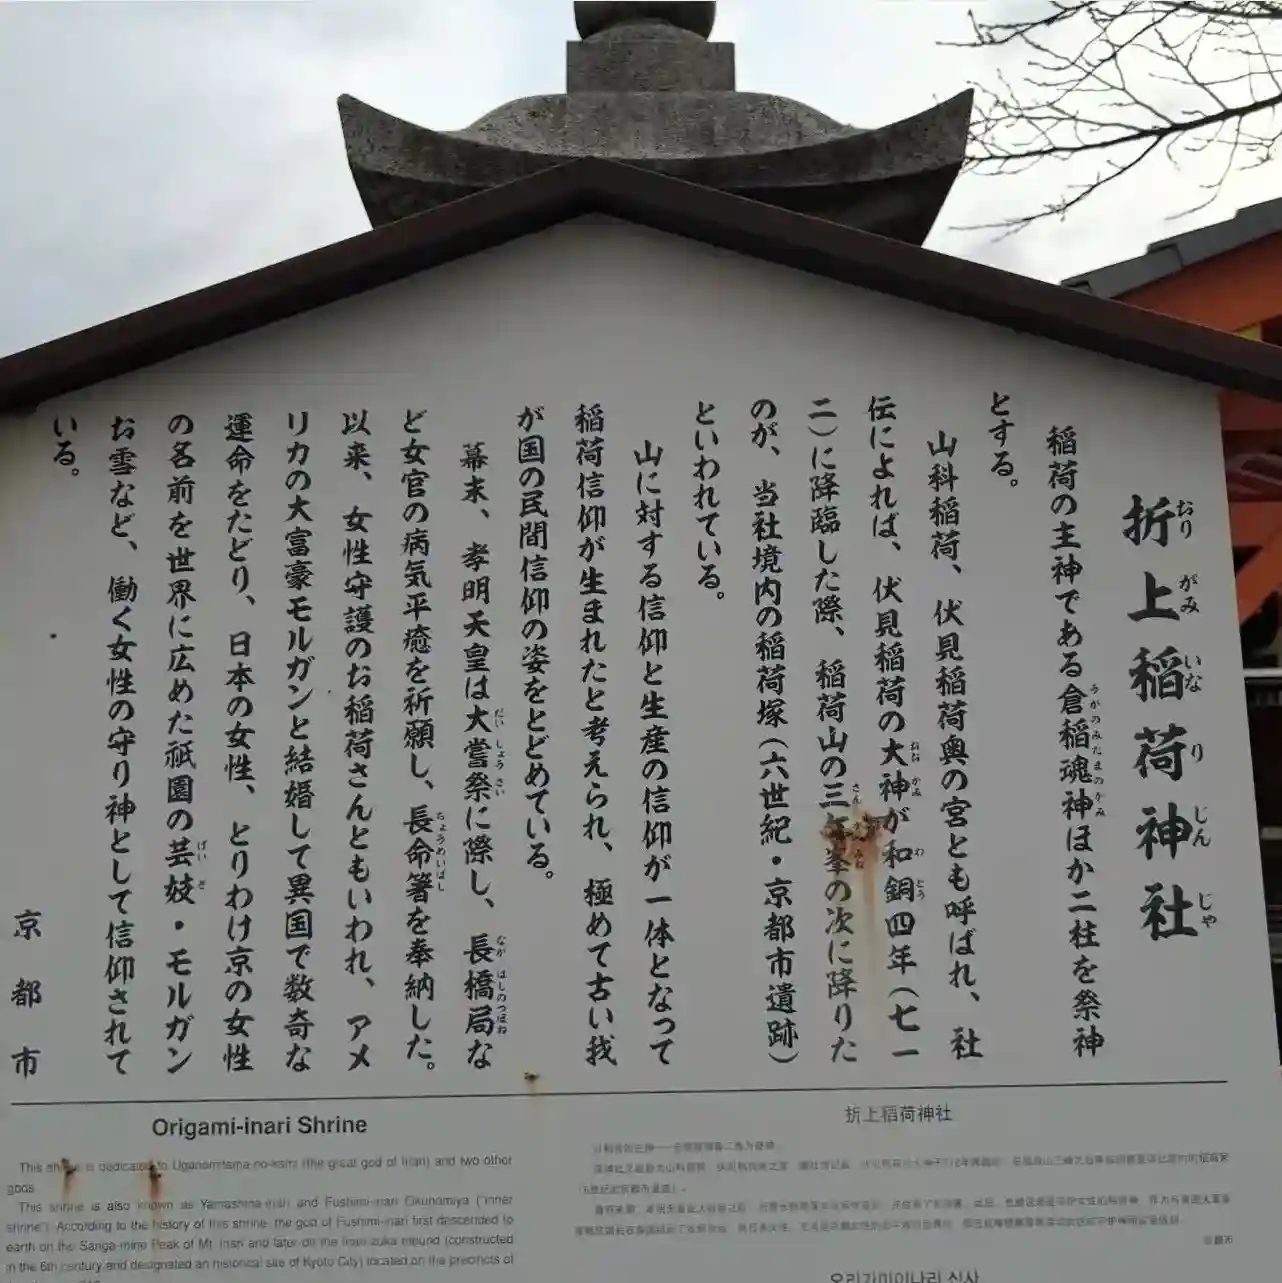 折上稲荷神社
おりがみいなりじんじゃ
稲荷の主神である倉稲魂神ほか二柱を祭神
うがのみたまのかみ
とする。
山科稲荷、伏見稲荷奥の宮とも呼ばれ、社
伝によれば、伏見稲荷の大神が和銅四年（七一
おおかみ
わどう
二）に降臨した際、稲荷山の三ヶ峯の次に降りた
のが、当社境内の稲荷塚（六世紀・京都市遺跡）
といわれている。
山に対する信仰と生産の信仰が一体となって
稲荷信仰が生まれたと考えられ、極めて古い我
が国の民間信仰の姿をとどめている。
幕末、孝明天皇は大嘗祭に際し、長橋局な
だいしょうさい
ながはしのつぼね
ど女官の病気平癒を祈願し、長命箸を奉納した。
ちょうめいばし
以来、女性守護のお稲荷さんともいわれ、アメ
リカの大富豪モルガンと結婚して異国で数奇な
運命をたどり、日本の女性、とりわけ京の女性
の名前を世界に広めた祇園の芸妓・モルガン
げいぎ
お雪など、働く女性の守り神として信仰されて
いる。
京都市
Origami-inari Shrine
This shrine is dedicated to Uganomitama-no-kami (the great god of Inari) and two other
gods.
This shrine is also known as Yamashina-inari and Fushimi-inari Okunomiya ("inner
shrine"). According to the history of this shrine, the god of Fushimi-inari first descended to
earth on the Sanga-mine Peak of Mt. Inari and later on the Inari-zuka mound (constructed
in the 6th century and designated an historical site of Kyoto City) located on the precincts of
折上稻荷神社
오리가미이나리 신사